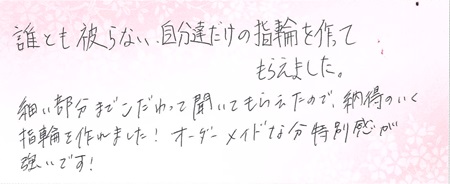 誰とも被らない、自分達だけの指輪を作って
もらえました。
細い部分までこだわって聞いてもらえたので、納得のいく
指輪を作れました！オーダーメイドな分特別感が
強いです！